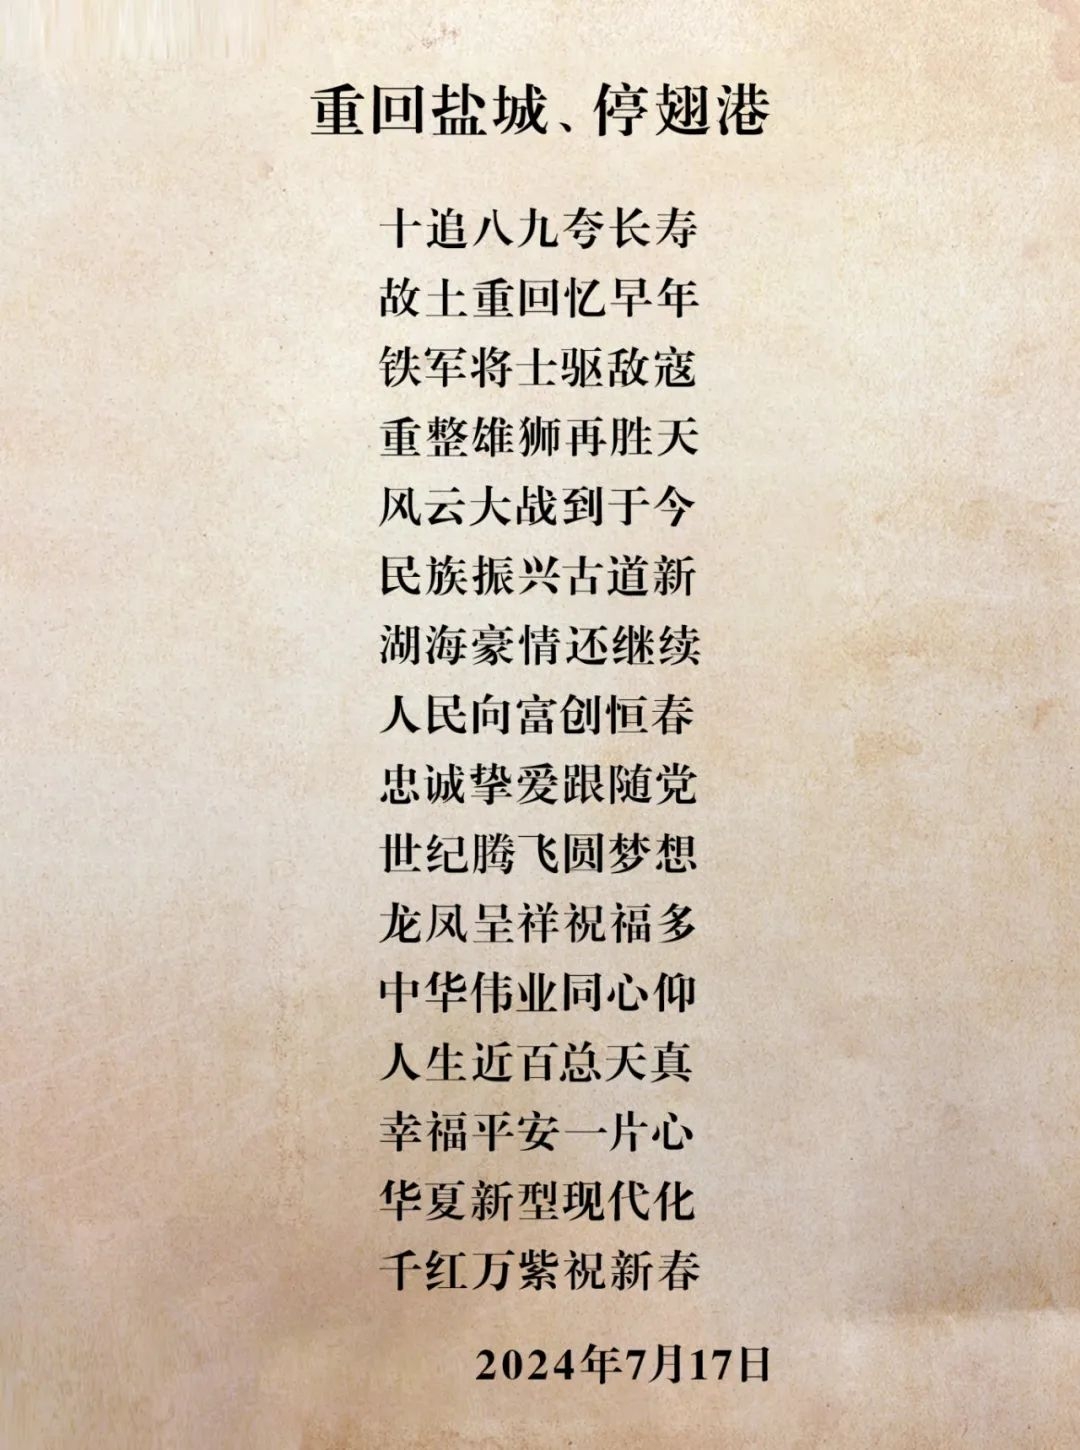 重回盐城、停翅港
十追八九夸长寿
故土重回忆早年
铁军将士驱敌寇
重整雄狮再胜天
风云大战到于今
民族振兴古道新
湖海豪情还继续
人民向富创恒春
忠诚挚爱跟随党
世纪腾飞圆梦想
龙凤呈祥祝福多
中华伟业同心仰
人生近百总天真
幸福平安一片心
华夏新型现代化
千红万紫祝新春
2024年7月17日